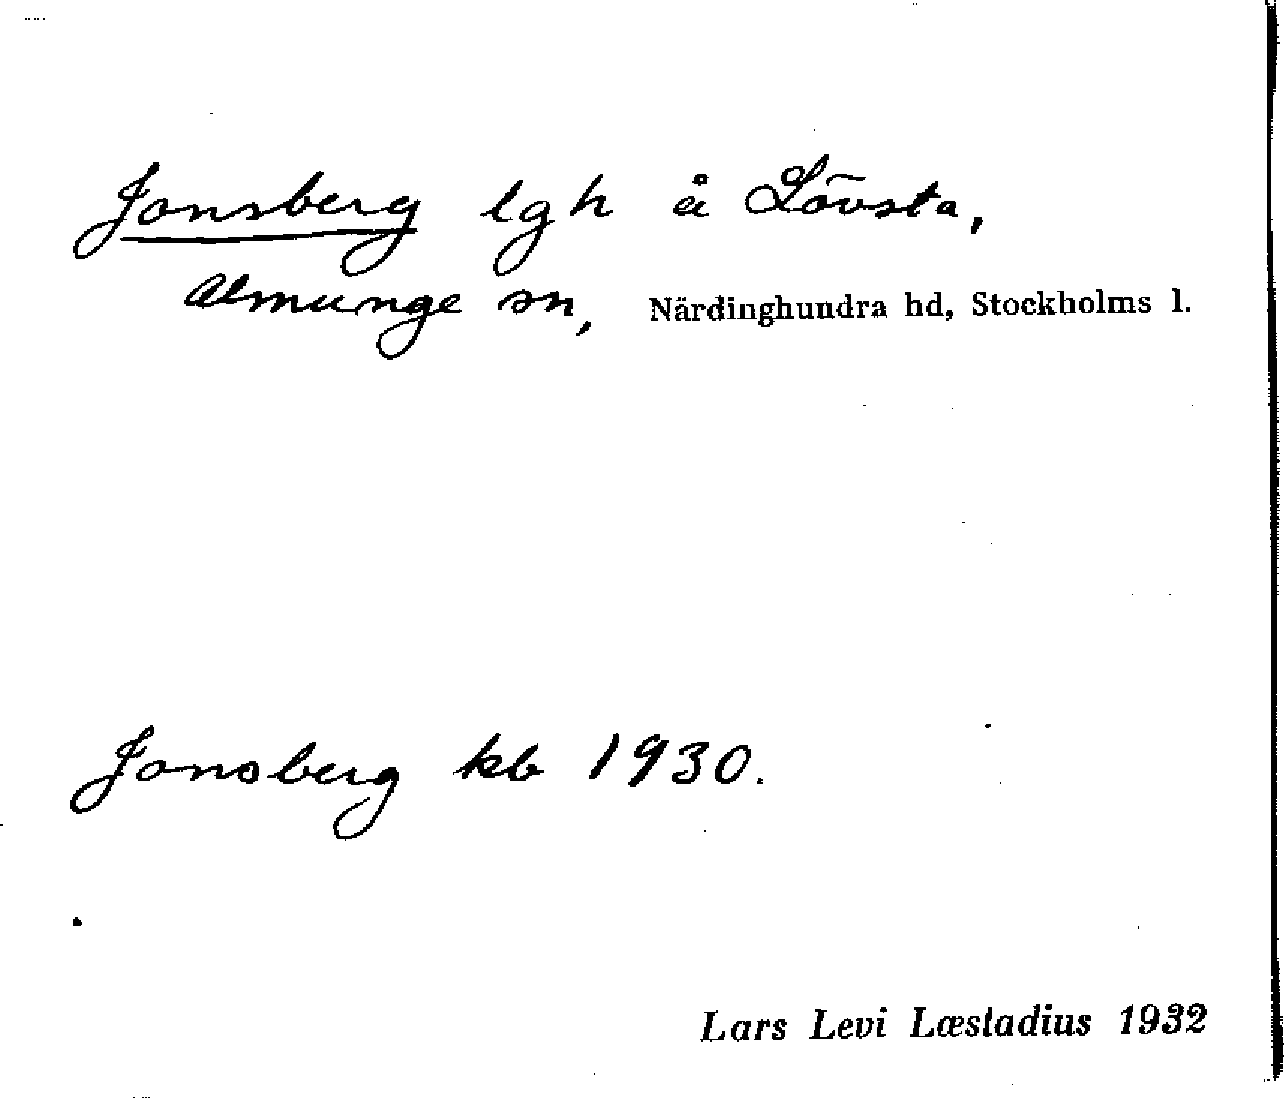 Jonsberg lgh å Lövsta,
Almunge sn, Närdinghundra hd, Stockholms l.
Jonsberg kb 1930.
Lars Levi Læstadius 1932